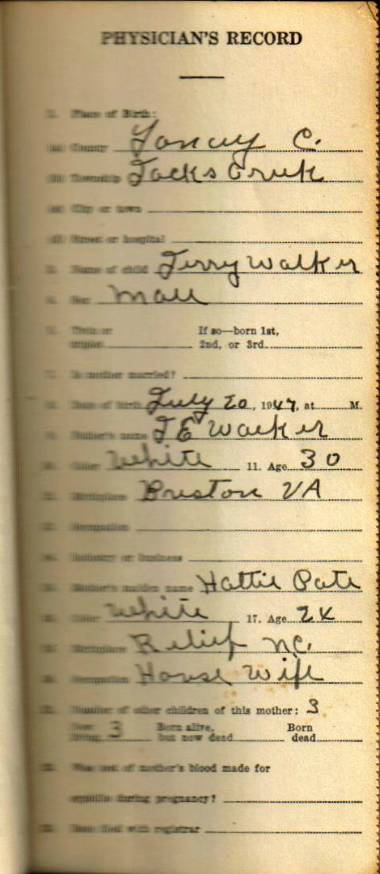 PHYSICIAN'S RECORD
Place of Birth:
County Yancy C.
Township Jacks Creek
City or town
Street or hospital
Name of child Terry Walker
Sex Male
Twin or If so—born 1st,
triplet 2nd, or 3rd
Is mother married?
Date of birth July 20, 1947, at M.
Father's name J E Walker
Color White 11. Age 30
Birthplace Briston VA
Occupation
Industry or business
Mother's maiden name Hattie Pate
White 17. Age 24
Birthplace Relief N.C.
Occupation House Wife
Number of other children of this mother: 3
Now Born alive, Born
living 3 but now dead dead
Was test of mother's blood made for
syphilis during pregnancy?
Date filed with registrar